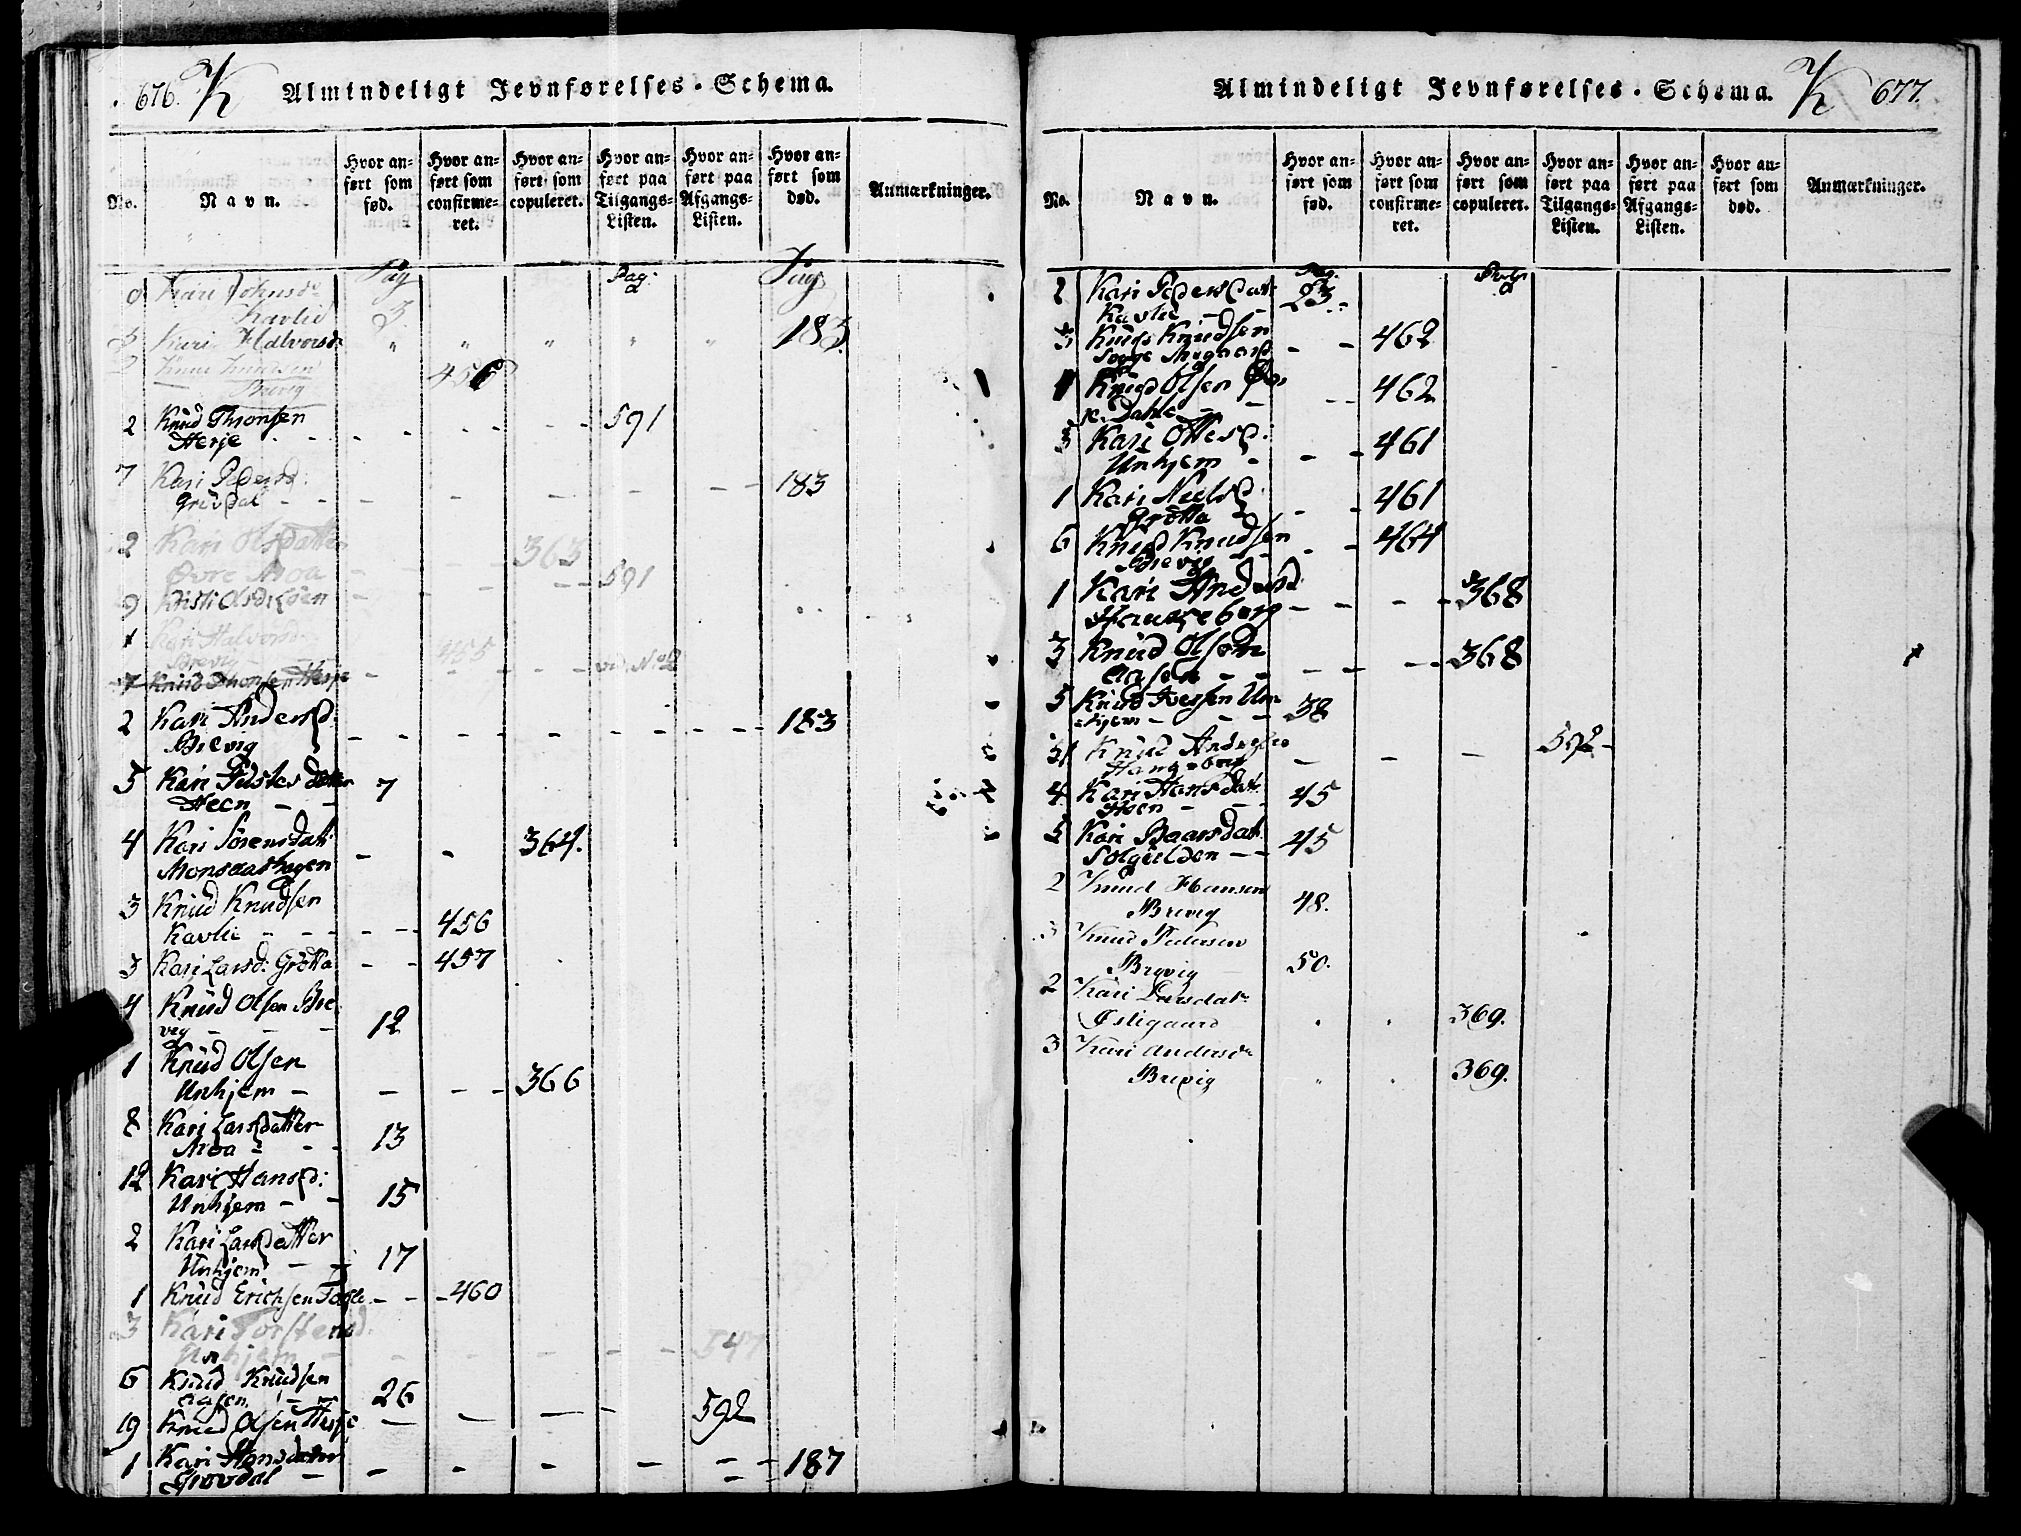 676. K Almindeligt Jevnførelses-Schema.
No.
Navn.
Hvor anført som fød.
Hvor anført som confirmeret.
Hvor anført som copuleret.
Hvor anført paa Tilgangs-Listen.
Hvor anført paa Afgangs-Listen.
Hvor anført som død.
Anmærkninger.
Pag Pag. Pag
Kari Johnsd.
Kavlie 3.
3 Kari Halvorsd. " " " " " 183.
2 Knud Knudsen
Brevig 456
2 Knud Thronsen
Herje - - - - 591
7 Kari Pedersd:
Grüvdal - - - - - - - 183
2 Kari Olsdatter 363
Øvre Moa - -
9 Kristi Olsd. Løen - - - 591
1 Kari Halvorsd.
Brevig - - 455
7 Knud Thronsen Herje - - - vid. No 2
2 Kari Andersd:
Brevig - - - - - - - 183
5 Kari Pedersdatter
Heen - - 7
4 Kari Sörensdatt:
Monsaashagen - - 364.
3 Knud Knudsen
Kavlie - - - - - 456
3 Kari Larsd: Grötta - - 457
4 Knud Olsen Bre-
vig - - - 12
1 Knüd Olsen
Unhjem - - - - 366
8 Kari Larsdatter
Moa - - - 13
12 Kari Hansd:
Unhjem - - 15
2 Kari Larsdatter
Unhjem - - 17
1 Knud Erichsen - - - 460
3 Kari Torstensd.
Unhjem - - - - - 547
6 Knud Knudsen
Aasen - - 26
19 Knud Olsen Herje - - - - 592
1 Kari Hansdatter
Grøvdal - - - - - - - 187
Almindeligt Jevnførelses-Schema. K 677.
No.
Navn.
Hvor anført som fød.
Hvor anført som confirmeret.
Hvor anført som copuleret.
Hvor anført paa Tilgangs-Listen.
Hvor anført paa Afgangs-Listen.
Hvor anført som død.
Anmærkninger.
Pag.
2 Kari Pedersdatt:
Kavlie - - - 23.
3 Knud Knudsen
- - 462
1 Knud Olsen
Dahle - - - - 462
3 Kari Ottesd:
Unhjem - - - 461
1 Kari Neelsd:
Grötta - - 461
6 Knud Knudsen
Brevig - - - - 464
1 Kari Andersd:
Haugeberg - - - - 368
3 Knüd Olsen
Aasen - - - - - 368
5 Knud Iversen Un-
hjem - - - 38
Knud Andersen
Haugeberg - - - 592 -
4 Kari Hansdat:
Heen - - - 45
5 Kari Baarsdat:
Solgielden - - 45
2 Knud Hansen
Brevig 48.
3 Knud Pedersen
Brevig 50.
2 Kari Larsdatr
Østigaard " " 369.
3 Kari Andersdr
Brevig " " 369.